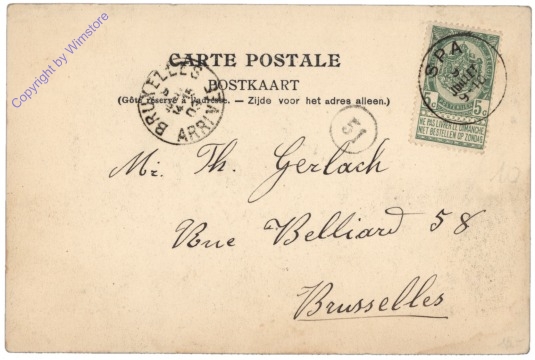 Copyright by Wimstore
CARTE POSTALE
POSTKAART
(Côté réservé à l'adresse. — Zijde voor het adres alleen.)
BRUXELLES
ARRIVEE
SPA
JUILL
5c 5c
NE PAS LIVRER LE DIMANCHE
NIET BESTELLEN OP ZONDAG
51
Mr. Th. Gerlach
Rue Belliard 58
Brusselles